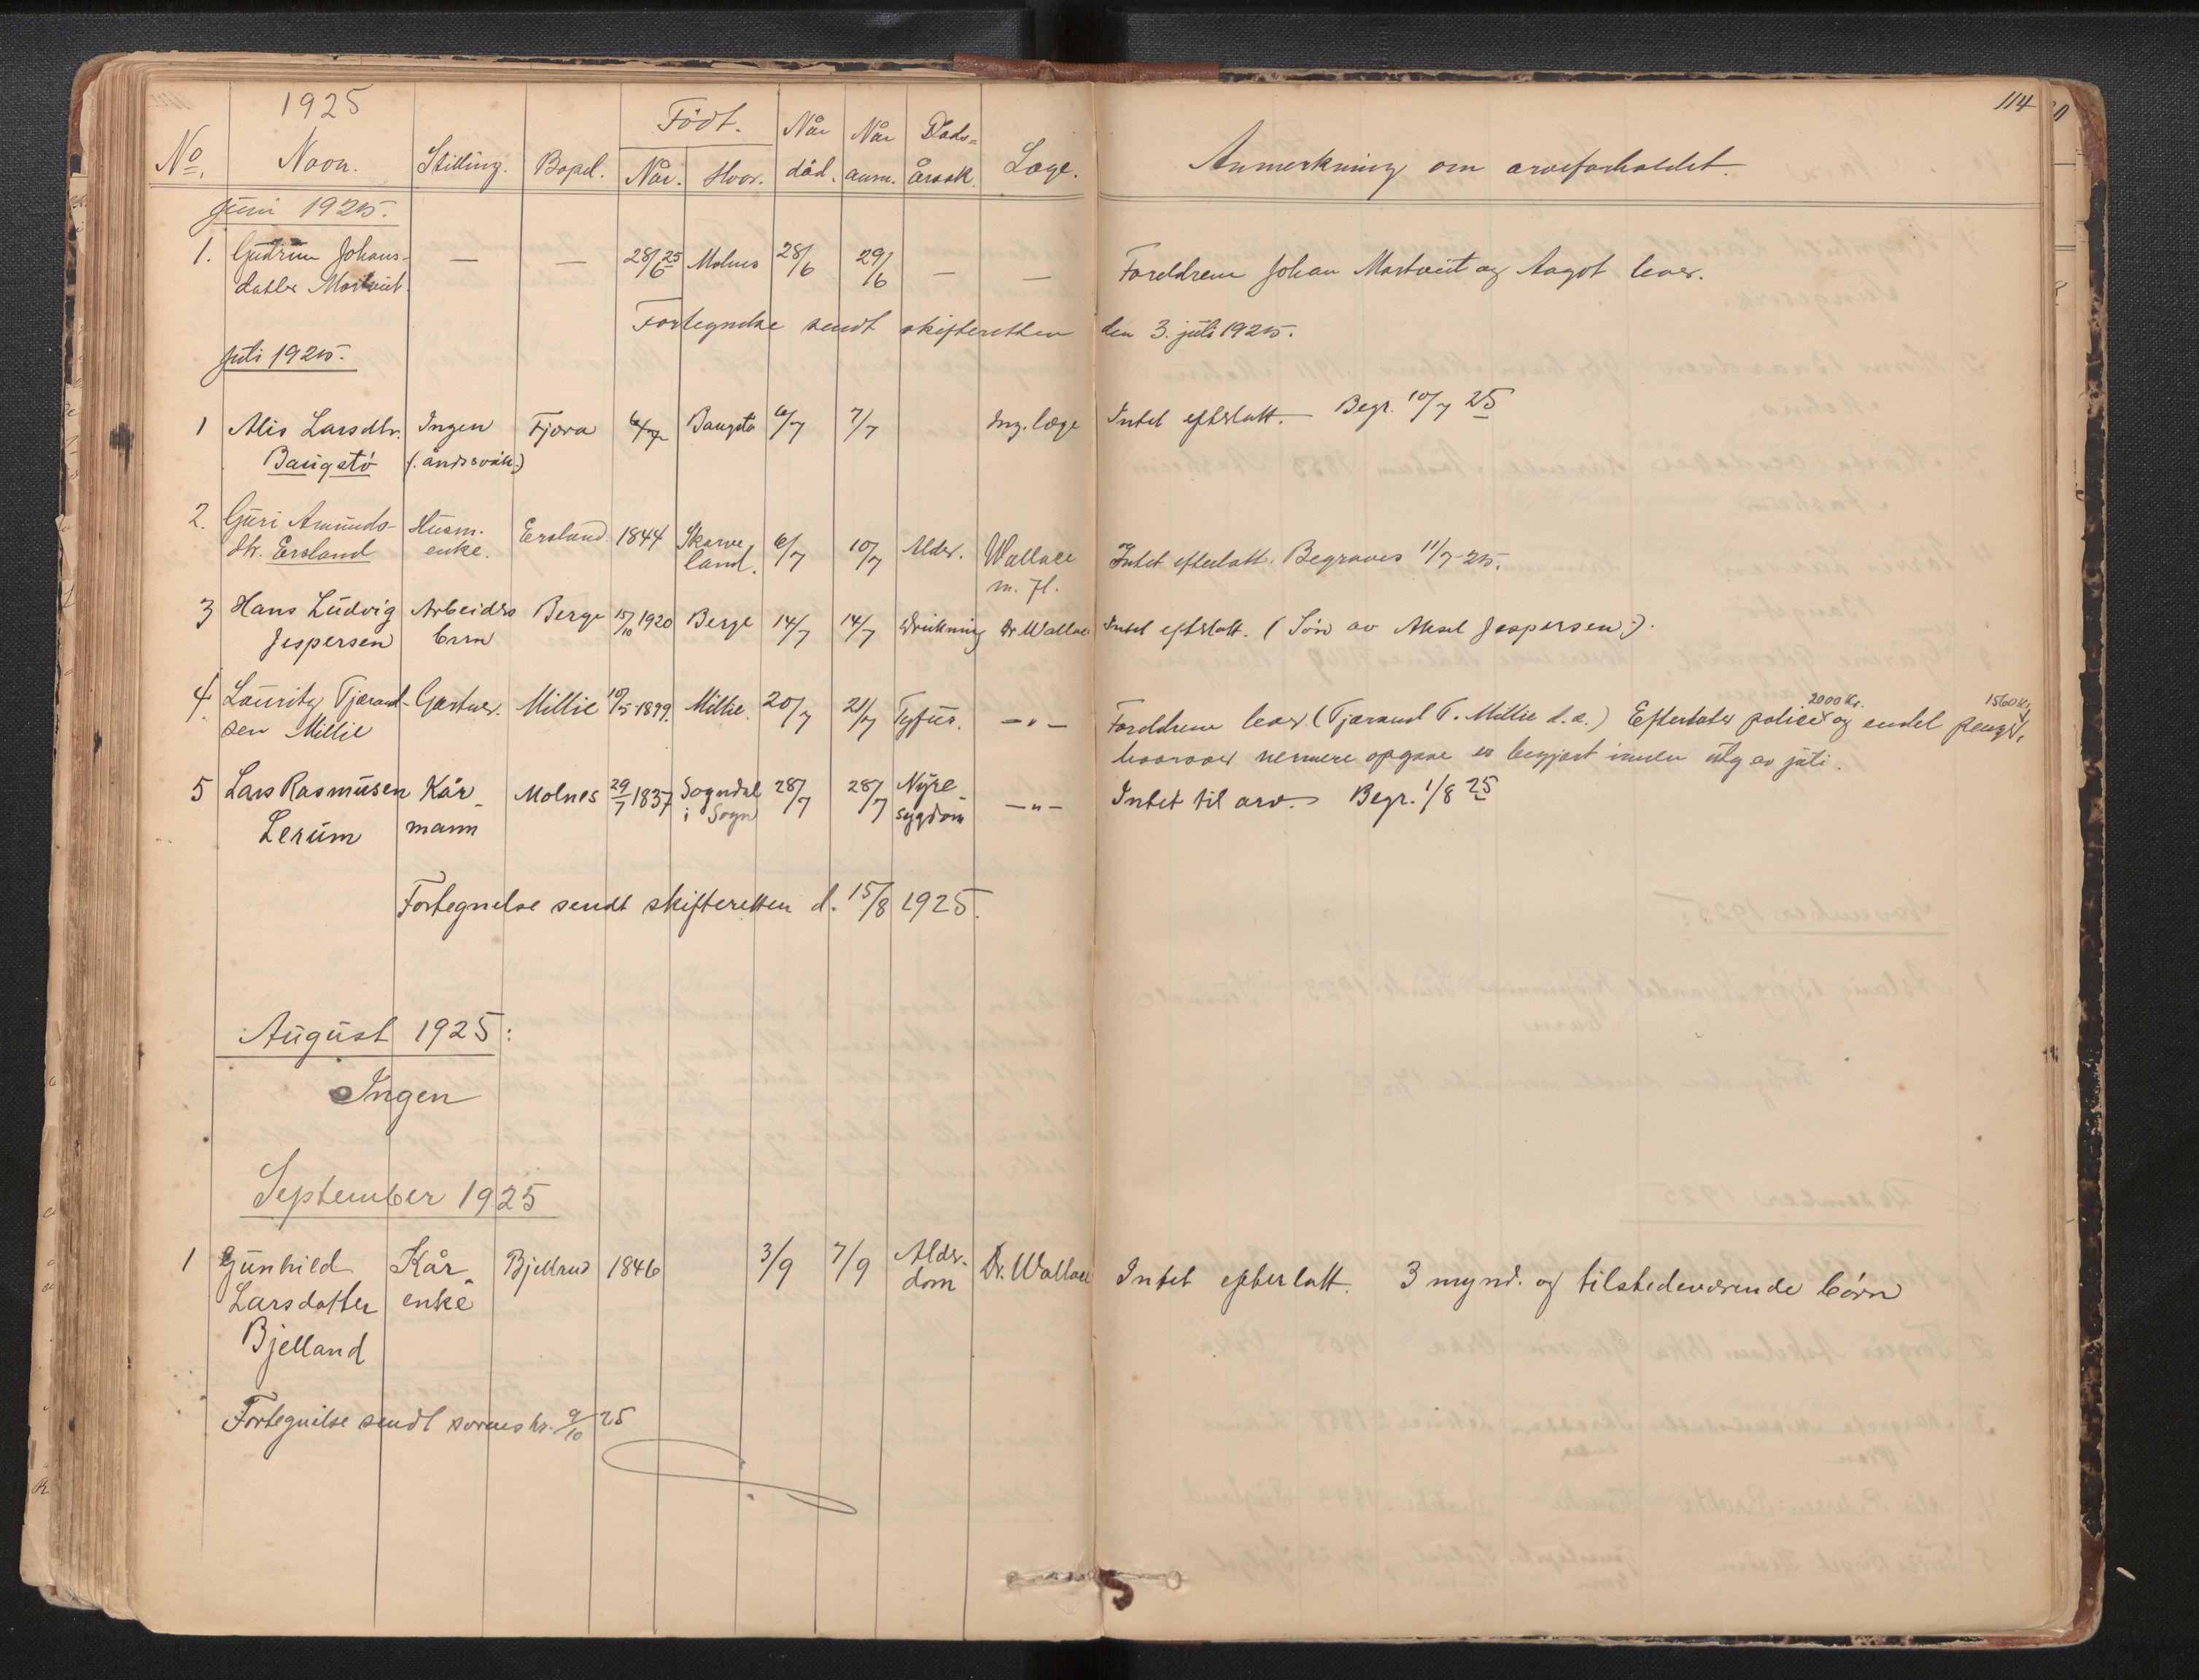 114
1925
No. Navn. Stilling. Bopel. Födt. Når. Hvor. Når död. Når anm. Döds-årsak. Læge. Anmerkning om arveforholdet.
Juni 1925.
1. Gudrun Johans- — — 28/6 25 Molnes 28/6 29/6 — — Foreldrene Johan Mostveit og Aagot lever.
datter Mostveit.
Fortegnelse sendt skifteretten den 3. juli 1925.
Juli 1925.
1 Alis Larsdtr. Ingen Fjæra Baugstø 6/7 7/7 Ing. læge Intet efterlatt. Begr. 10/7 25
Baugstö (åndssvak)
2. Guri Amunds- Husm. Ersland. 1844 Skarve 6/7 10/7 Alder. Wallace Intet efterlatt. Begraves 11/7-25.
dtr. Ersland enke. land. m. fl.
3 Hans Ludvig Arbeiders Berge 15/10 1920 Berge 14/7 14/7 Drukning Dr Wallace Intet efterlatt. (Sön av Aksel Jespersen).
Jespersen barn
4. Lauritz Tjærand- Gartner. Millie 10/5-1899. Millie. 20/7 21/7 Tyfus. —"— Foreldrene lever (Tjærand T. Millie d.e.) Efterlater police 2000 Kr. og endel penge 1560 Kr,
sen Millie hvorover nermere opgave er begjært innen utg av juli.
5 Lars Rasmusen Kår- Molnes 29/7 1837 Sogndal 28/7 28/7 Nyre- —"— Intet til arv. Begr. 1/8 25
Lerum mann i Sogn sygdom
Fortegnelse sendt skifteretten d. 15/8 1925.
August 1925:
Ingen
September 1925
1 Gunhild Kår- Bjelland 1846 3/9 7/9 Alder- Dr. Wallace Intet efterlatt. 3 mynd. og tilstedeværende börn
Larsdatter enke dom
Bjelland
Fortegnelse sendt sorenskr. 9/10 25